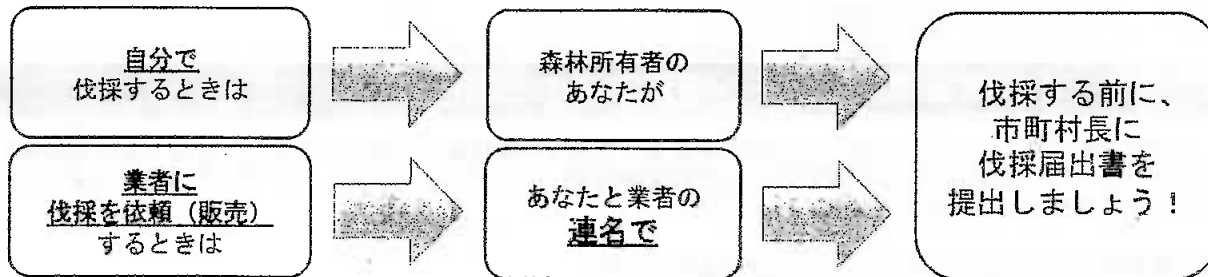 自分で
伐採するときは
森林所有者の
あなたが
業者に
伐採を依頼（販売）
するときは
あなたと業者の
連名で
伐採する前に、
市町村長に
伐採届出書を
提出しましょう！